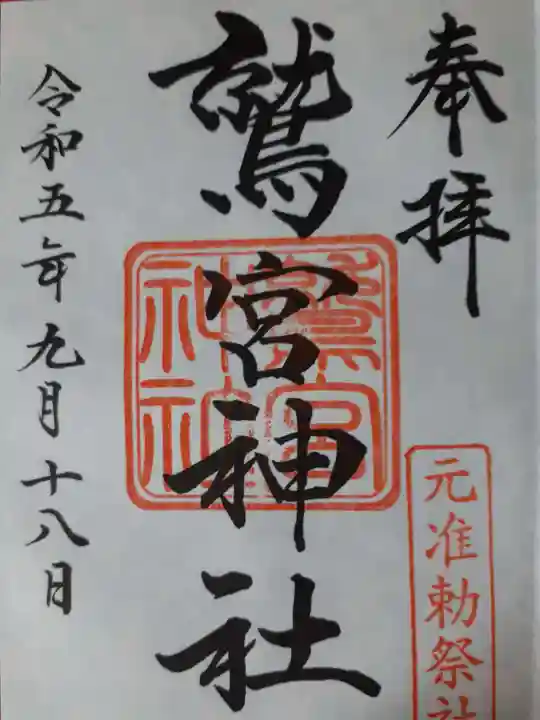 奉拝
元准勅祭社
鷲宮神社
鷲宮神社
令和五年九月十八日